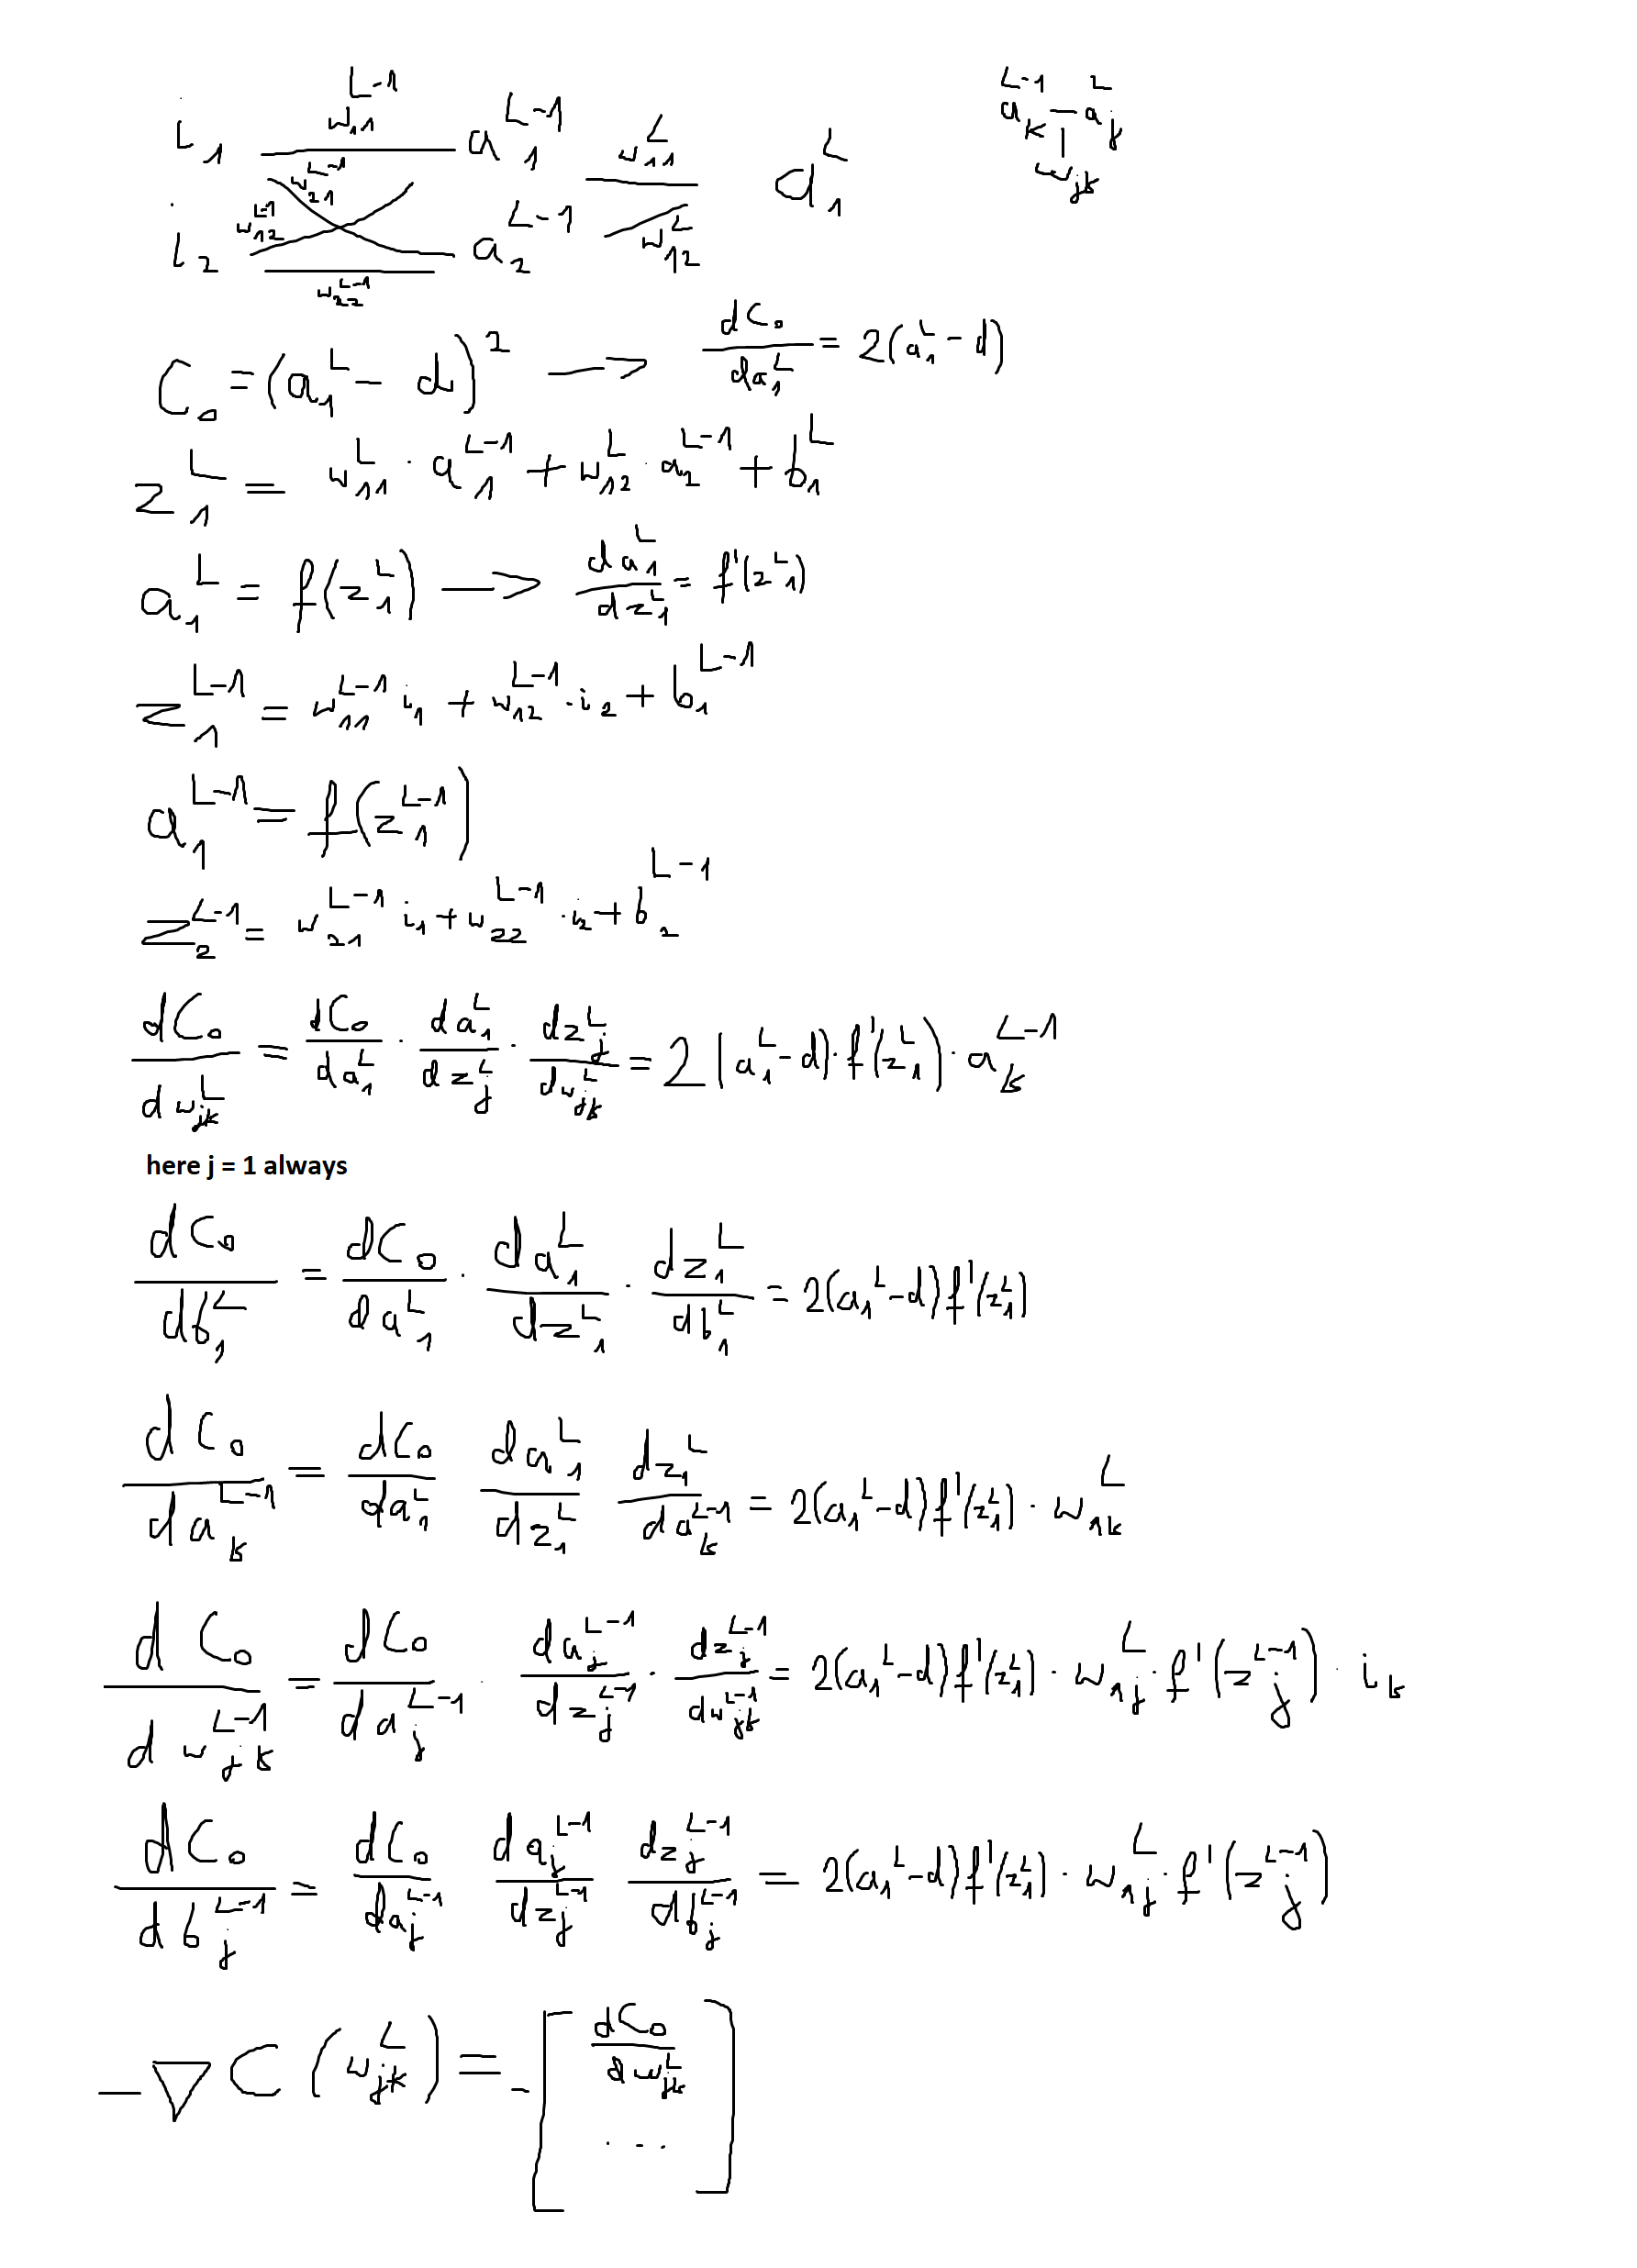 i_1 w_{11}^{L-1} a_1^{L-1} w_{11}^L a_1^L a_k^{L-1} – a_j^L
w_{21}^{L-1} w_{jk}
i_2 w_{12}^{L-1} a_2^{L-1} w_{12}^L
w_{22}^{L-1}
C_0 = (a_1^L - d)^2 → dC_0/da_1^L = 2(a_1^L - d)
z_1^L = w_{11}^L · a_1^{L-1} + w_{12}^L · a_2^{L-1} + b_1^L
a_1^L = f(z_1^L) → da_1^L/dz_1^L = f'(z_1^L)
z_1^{L-1} = w_{11}^{L-1} i_1 + w_{12}^{L-1} · i_2 + b_1^{L-1}
a_1^{L-1} = f(z_1^{L-1})
z_2^{L-1} = w_{21}^{L-1} i_1 + w_{22}^{L-1} · i_2 + b_2^{L-1}
dC_0/dw_{jk}^L = dC_0/da_1^L · da_1^L/dz_j^L · dz_j^L/dw_{jk}^L = 2(a_1^L - d) · f'(z_1^L) · a_k^{L-1}
here j = 1 always
dC_0/db_1^L = dC_0/da_1^L · da_1^L/dz_1^L · dz_1^L/db_1^L = 2(a_1^L - d) f'(z_1^L)
dC_0/da_k^{L-1} = dC_0/da_1^L da_1^L/dz_1^L dz_1^L/da_k^{L-1} = 2(a_1^L - d) f'(z_1^L) · w_{1k}^L
dC_0/dw_{jk}^{L-1} = dC_0/da_j^{L-1} · da_j^{L-1}/dz_j^{L-1} · dz_j^{L-1}/dw_{jk}^{L-1} = 2(a_1^L - d) f'(z_1^L) · w_{1j}^L · f'(z_j^{L-1}) · i_k
dC_0/db_j^{L-1} = dC_0/da_j^{L-1} da_j^{L-1}/dz_j^{L-1} dz_j^{L-1}/db_j^{L-1} = 2(a_1^L - d) f'(z_1^L) · w_{1j}^L · f'(z_j^{L-1})
-∇C(w_{jk}^L) = -[dC_0/dw_{jk}^L
...]